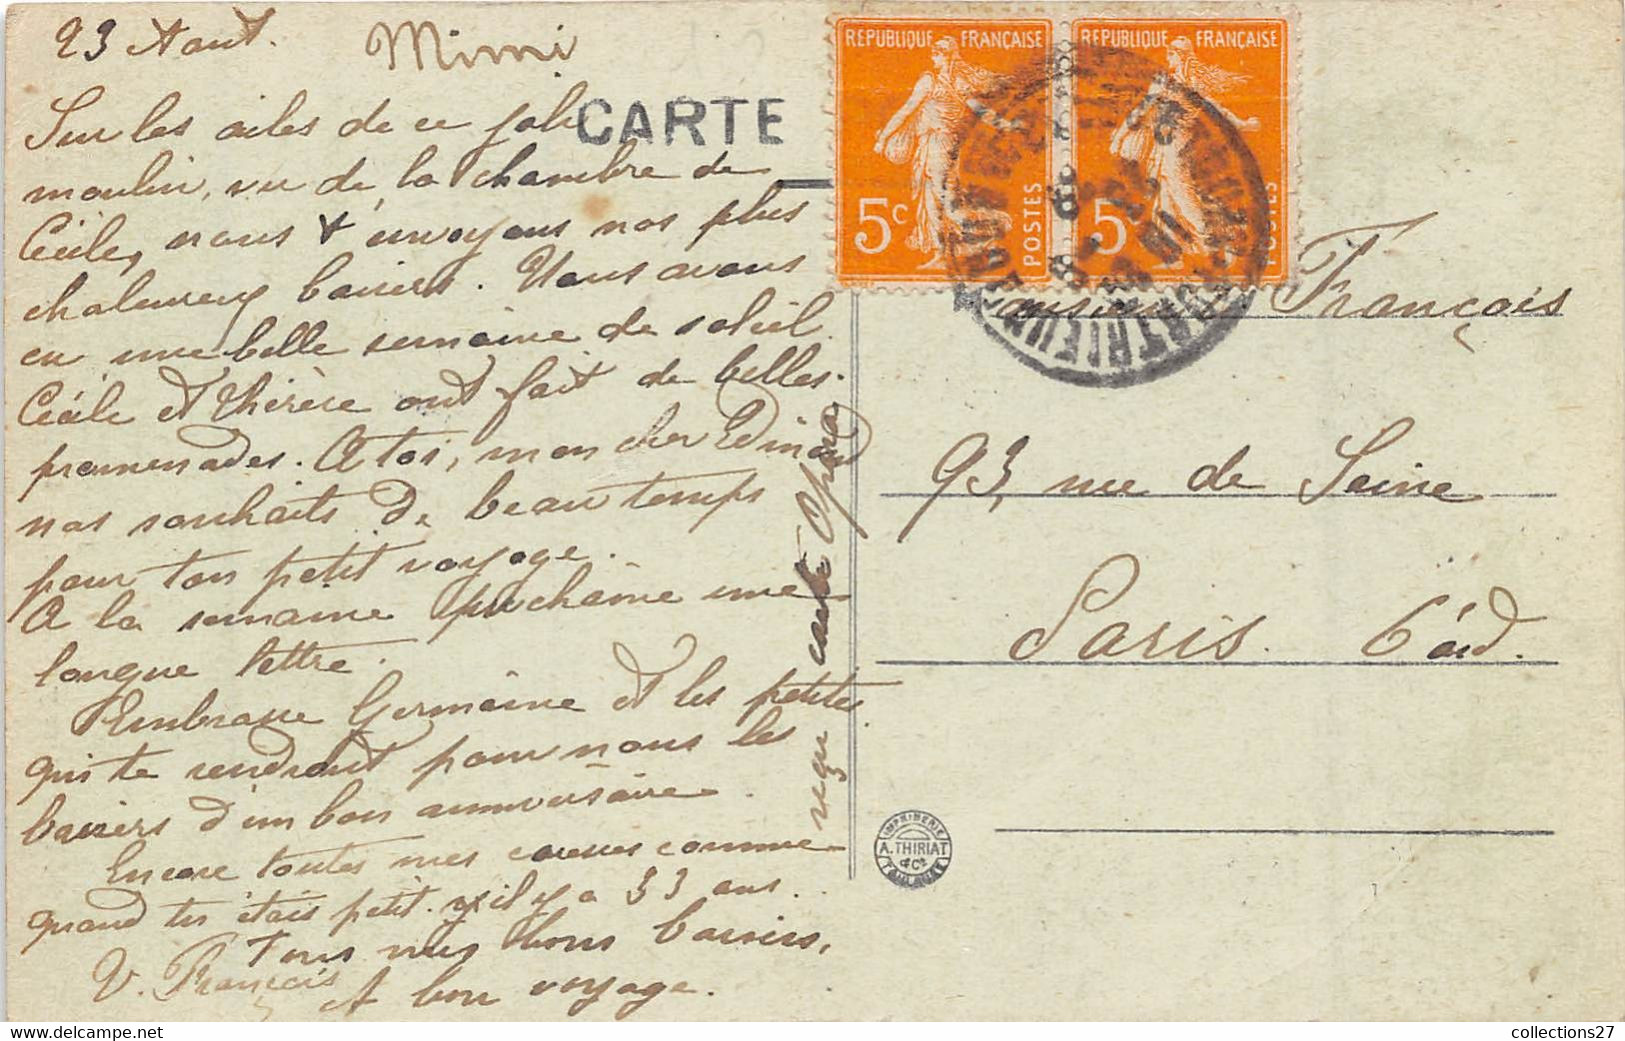 23 Aout. Mimi
Sur les ailes de ce joli
moulin, vu de la chambre de
Cécile, nous t'envoyons nos plus
chaleureux baisers. Nous avons
eu une belle semaine de soleil.
Cécile et Thérèse ont fait de belles
promenades. A toi, mon cher Edmond
nos souhaits de beau temps
pour ton petit voyage.
A la semaine prochaine une
longue lettre.
Embrasse Germaine et les petites
qui te rendront pour nous les
baisers d'un bon anniversaire.
Encore toutes mes caresses comme
quand tu étais petit. il y a 33 ans.
Tous mes bons baisers,
V. François A bon voyage.
reçu carte Opéra
CARTE
REPUBLIQUE FRANÇAISE
5c POSTES
REPUBLIQUE FRANÇAISE
5c POSTES
Monsieur François
93, rue de Seine
Paris. 6 ard.
IMPRIMERIE
A. THIRIAT
& Cie
TOULOUSE
collections27